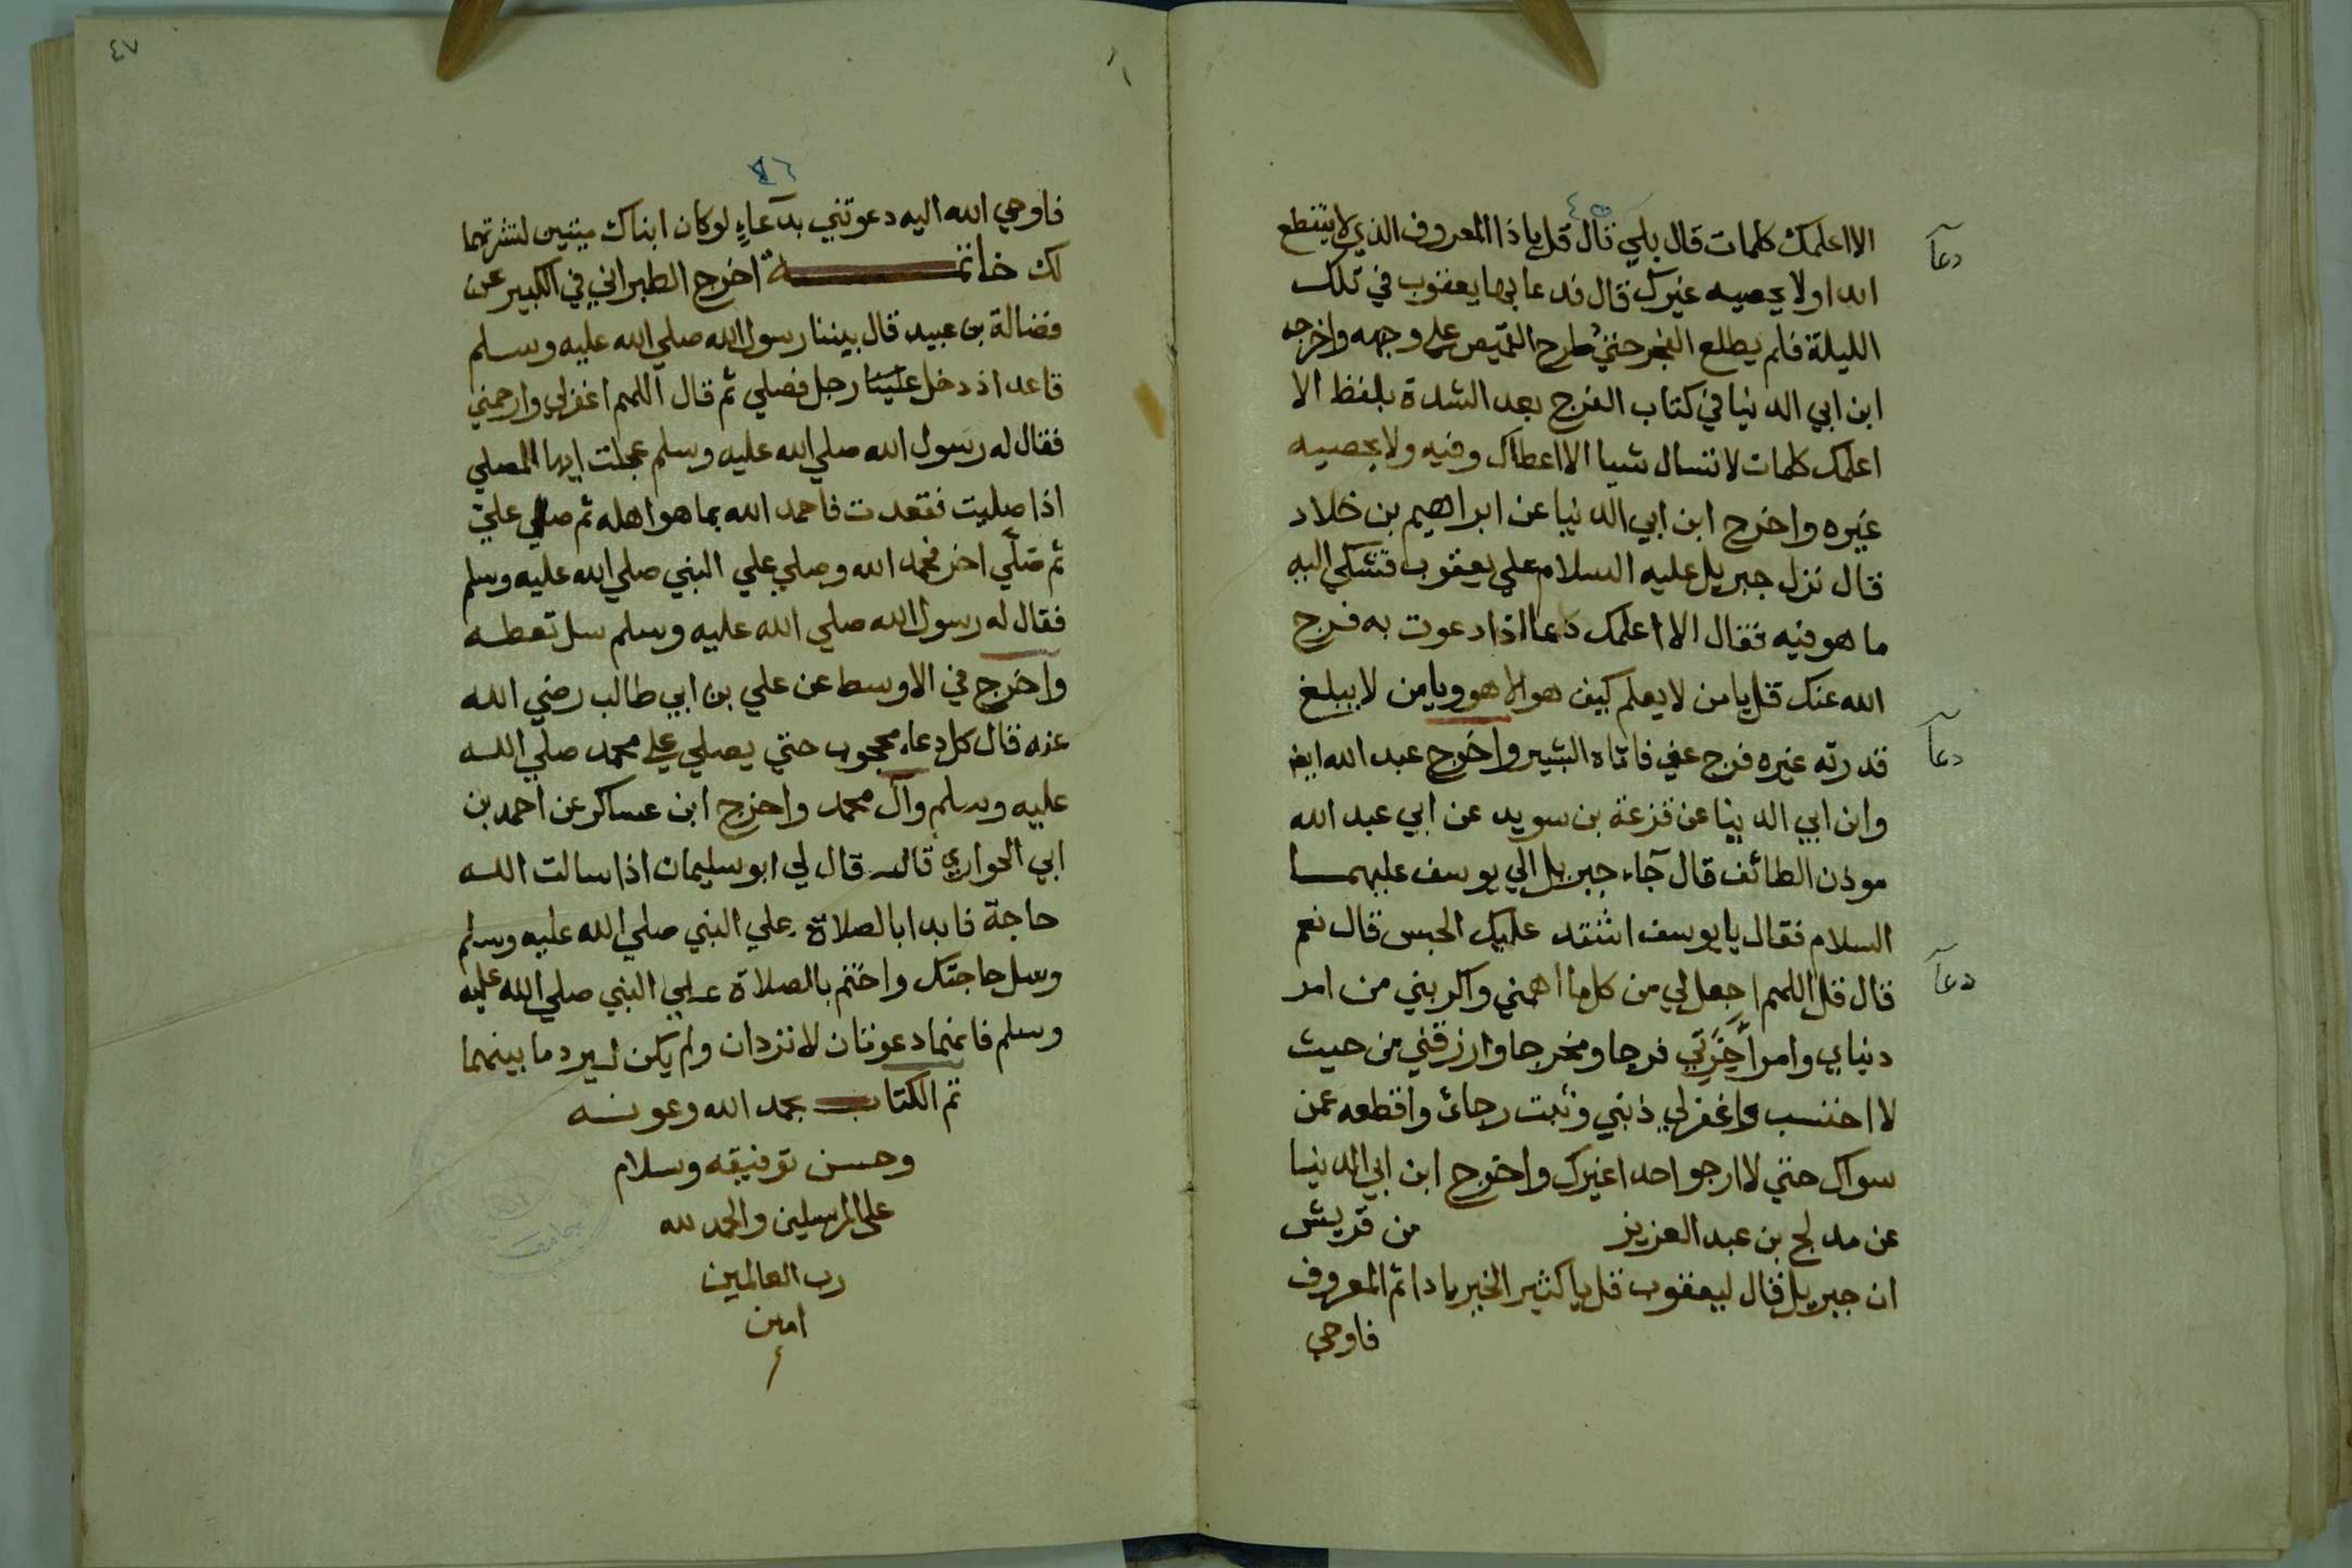 ٤٥
الا اعلمك كلمات قال بلي قال قل يا ذا المعروف الذي لا ينقطع
دعآ
ابدا ولا يحصيه غيرك قال فدعا بها يعقوب في تلك
الليلة فلم يطلع الفجر حتي طرح القميص علي وجهه واخرجه
ابن ابي الدنيا في كتاب الفرج بعد الشدة بلفظ الا
اعلمك كلمات لا تسال شيا الا اعطاك وفيه ولا يحصيه
غيره واخرج ابن ابي الدنيا عن ابراهيم بن خلاد
قال نزل جبريل عليه السلام علي يعقوب فتشكي اليه
ما هو فيه فقال الا اعلمك دعا اذا دعوت به فرج
الله عنك قل يا من لا يعلم كيف هو الا هو ويا من لا يبلغ
قدرته غيره فرج عني فاتاه البشير واخرج عبد الله ايضا
دعآ
وابن ابي الدنيا عن قزعة بن سويد عن ابي عبد الله
موذن الطائف قال جآء جبريل الي يوسف عليهما
السلام فقال يا يوسف اشتد عليك الحبس قال نعم
قال قل اللهم اجعل لي من كل ما اهمني واكربني من امر
دعآ
دنياي وامر آخرتي فرجا ومخرجا وارزقني من حيث
لا احتسب واغفر لي ذنبي وثبت رجائ واقطعه عمن
سواك حتي لا ارجوا احدا غيرك واخرج ابن ابي الدنيا
عن مدلج بن عبد العزيز من قريش
ان جبريل قال ليعقوب قل يا كثير الخير يا دائم المعروف
فاوحي
٤٧
٤٦
فاوحي الله اليه دعوتني بدعآء لو كان ابناك ميتين لنشرتهما
لك خاتمـــة اخرج الطبراني في الكبير عن
فضالة بن عبيد قال بيننا رسول الله صلي الله عليه وسلم
قاعد اذ دخل علينا رجل فصلي ثم قال اللهم اغفر لي وارحمني
فقال له رسول الله صلي الله عليه وسلم عجلت ايها المصلي
اذا صليت فقعدت فاحمد الله بما هو اهله ثم صلي علي
ثم صلّي اخر فحمد الله وصلي علي النبي صلي الله عليه وسلم
فقال له رسول الله صلي الله عليه وسلم سل تعطه
واخرج في الاوسط عن علي بن ابي طالب رضي الله
عنه قال كل دعاء محجوب حتي يصلي علي محمد صلي الله
عليه وسلم وآل محمد واخرج ابن عساكر عن احمد بن
ابي الحواري قال قال لي ابو سليمان اذا سالت الله
حاجة فابدا بالصلاة علي النبي صلي الله عليه وسلم
وسل حاجتك واختم بالصلاة علي النبي صلي الله عليه
وسلم فانهما دعوتان لا تردان ولم يكن ليرد ما بينهما
تم الكتاب بحمد الله وعونه
وحسن توفيقه وسلام
علي المرسلين والحمد لله
رب العالمين
امين